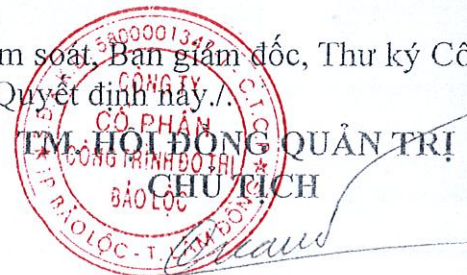 m soát, Ban giám đốc, Thư ký Cô
Quyết định này./.
TM. HỘI ĐỒNG QUẢN TRỊ
CHỦ TỊCH
CÔNG TY
CỔ PHẦN
CÔNG TRÌNH ĐÔ THỊ
BẢO LỘC
TP BẢO LỘC - T. LÂM ĐỒNG